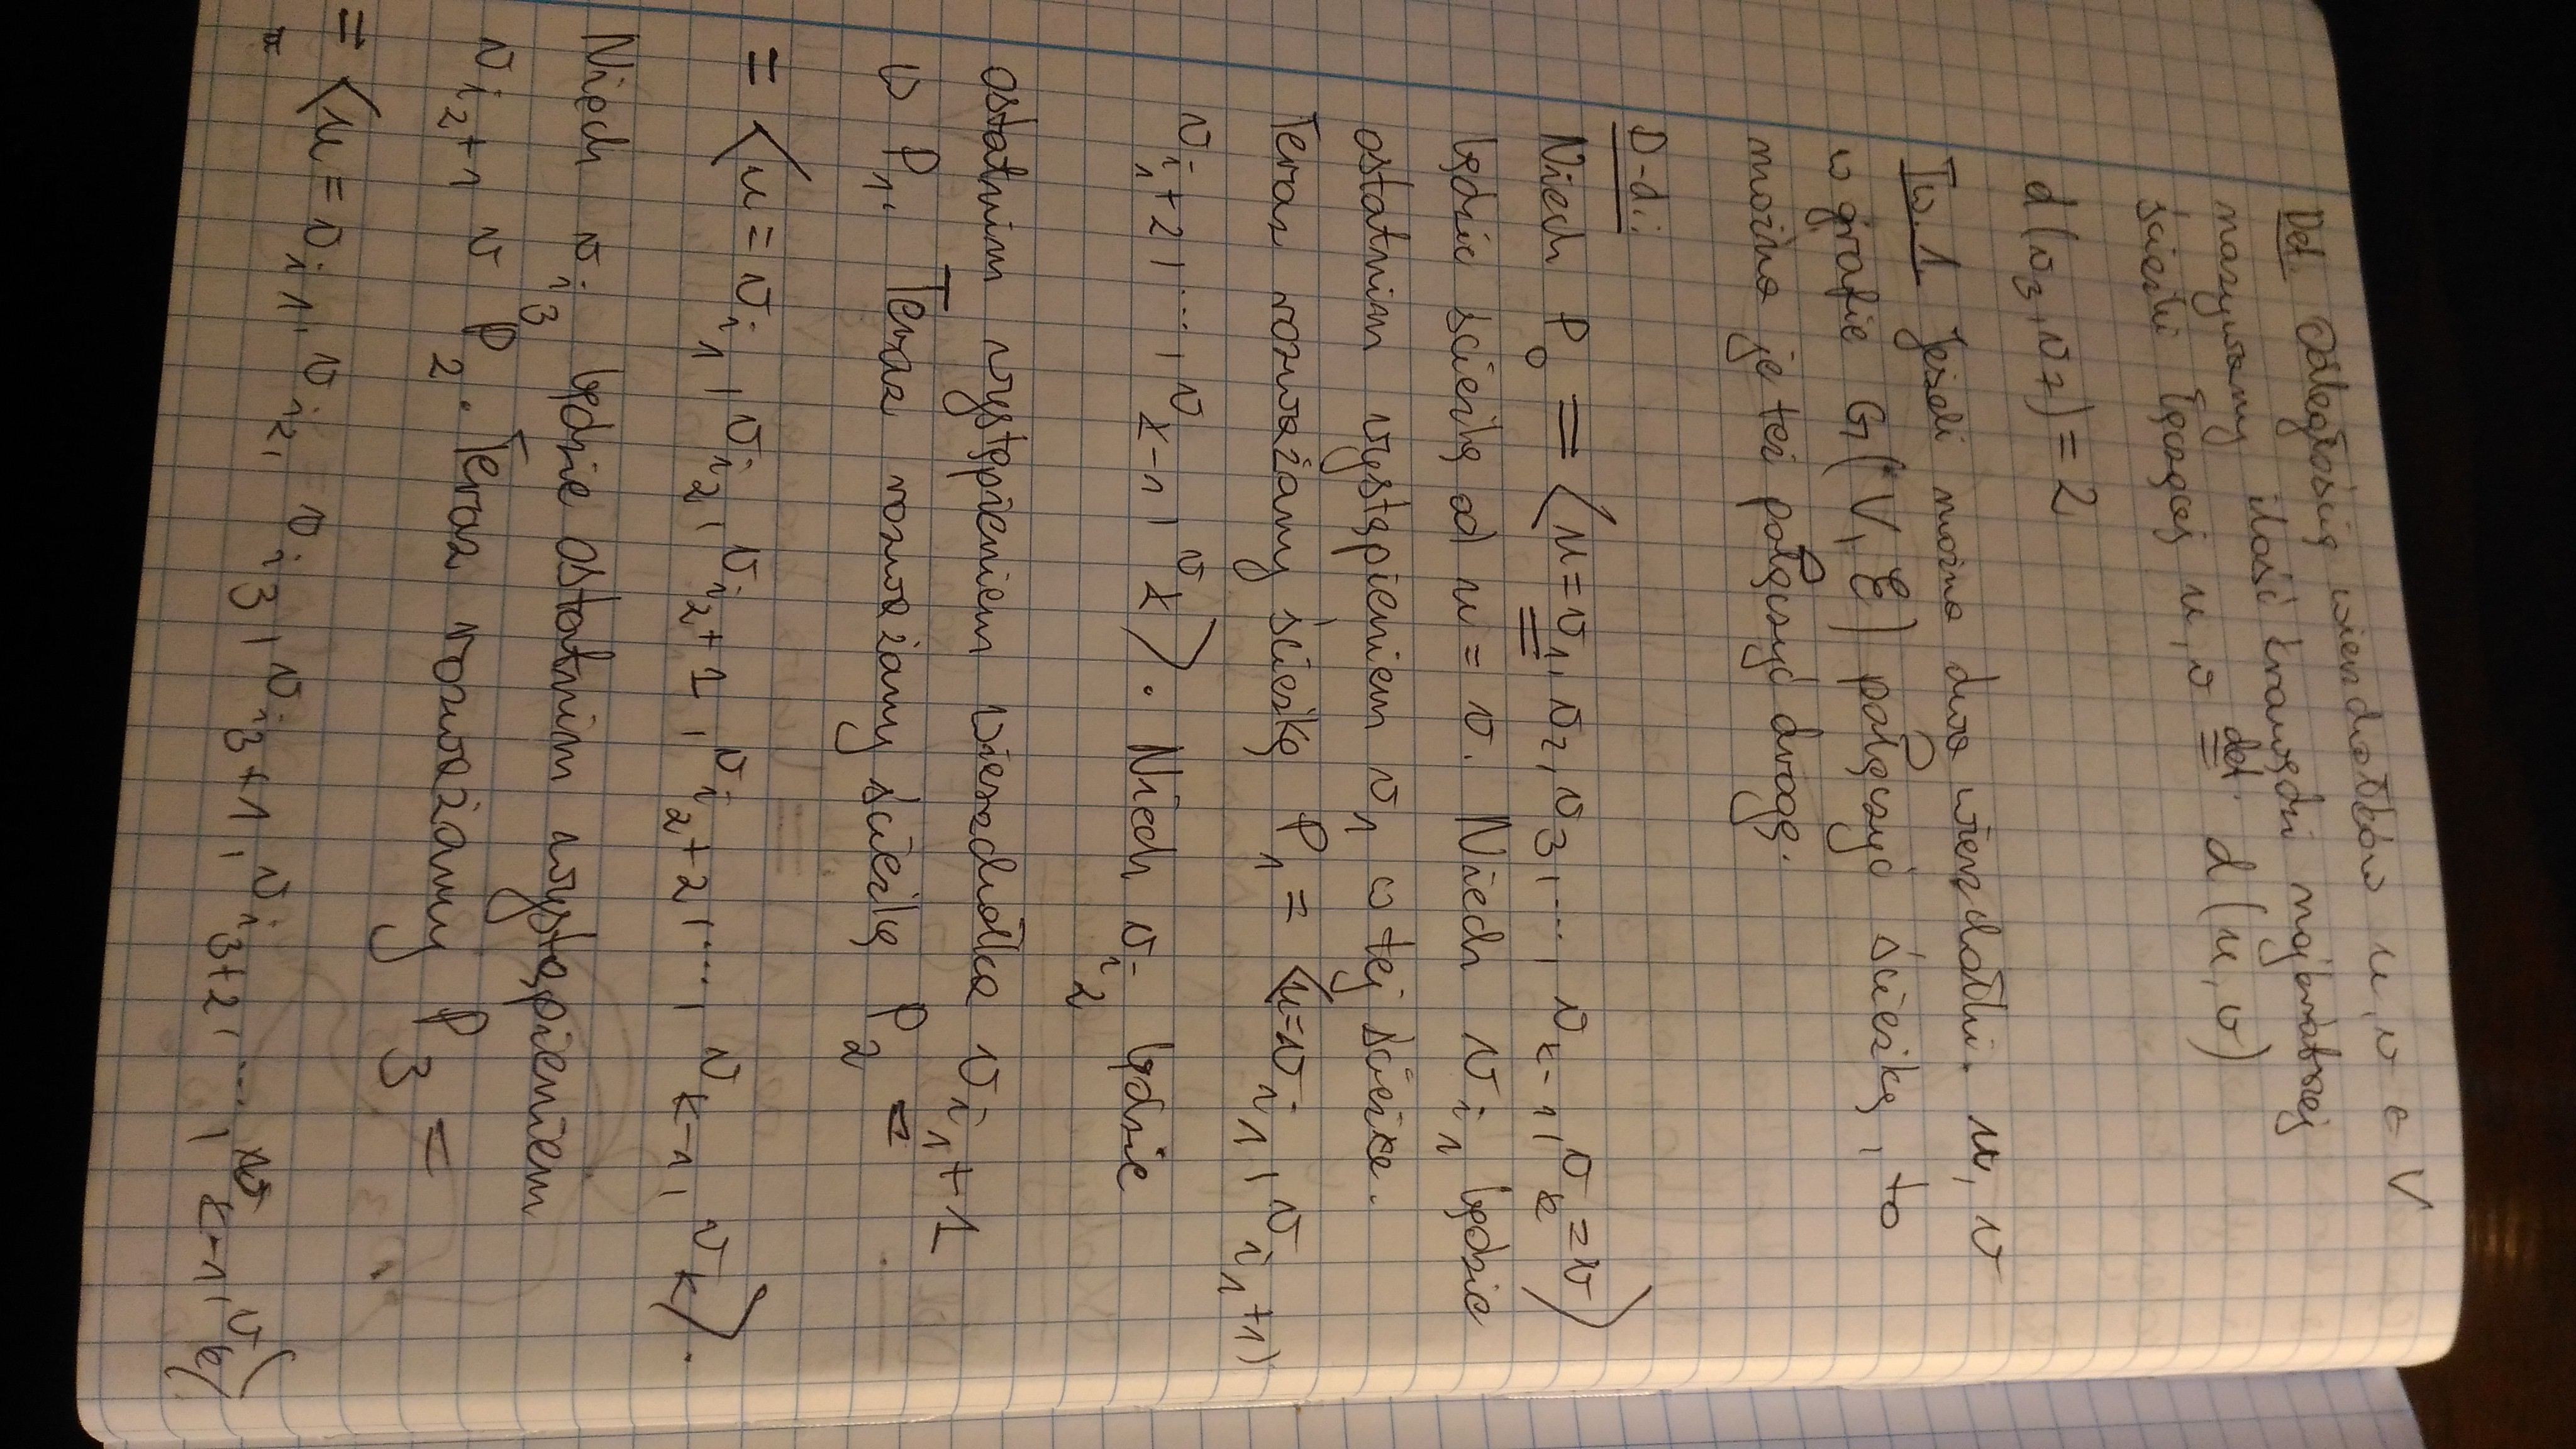 Def. Odległością wierzchołków u, v ∈ V
nazywamy ilość krawędzi najkrótszej
ścieżki łączącej u, v def. = d(u, v)
d(v₃, v₇) = 2
Tw. 1. Jeżeli można dwa wierzchołki u, v
w grafie G(V, E) połączyć ścieżką, to
można je też połączyć drogą.
D-d.:
Niech P₀ = ⟨u = v₁, v₂, v₃, ..., v_{k-1}, v_k = v⟩
będzie ścieżką od u = v. Niech v_{i₁} będzie
ostatnim wystąpieniem v₁ w tej ścieżce.
Teraz rozważamy ścieżkę P₁ = ⟨u = v_{i₁}, v_{i₁+1},
v_{i₁+2}, ..., v_{k-1}, v_k⟩. Niech v_{i₂} będzie
ostatnim wystąpieniem wierzchołka v_{i₁+1}
w P₁. Teraz rozważamy ścieżkę P₂ =
= ⟨u = v_{i₁}, v_{i₂}, v_{i₂+1}, v_{i₂+2}, ..., v_{k-1}, v_k⟩.
Niech v_{i₃} będzie ostatnim wystąpieniem
v_{i₂+1} w P₂. Teraz rozważamy P₃ =
= ⟨u = v_{i₁}, v_{i₂}, v_{i₃}, v_{i₃+1}, v_{i₃+2}, ..., v_{k-1}, v_k⟩